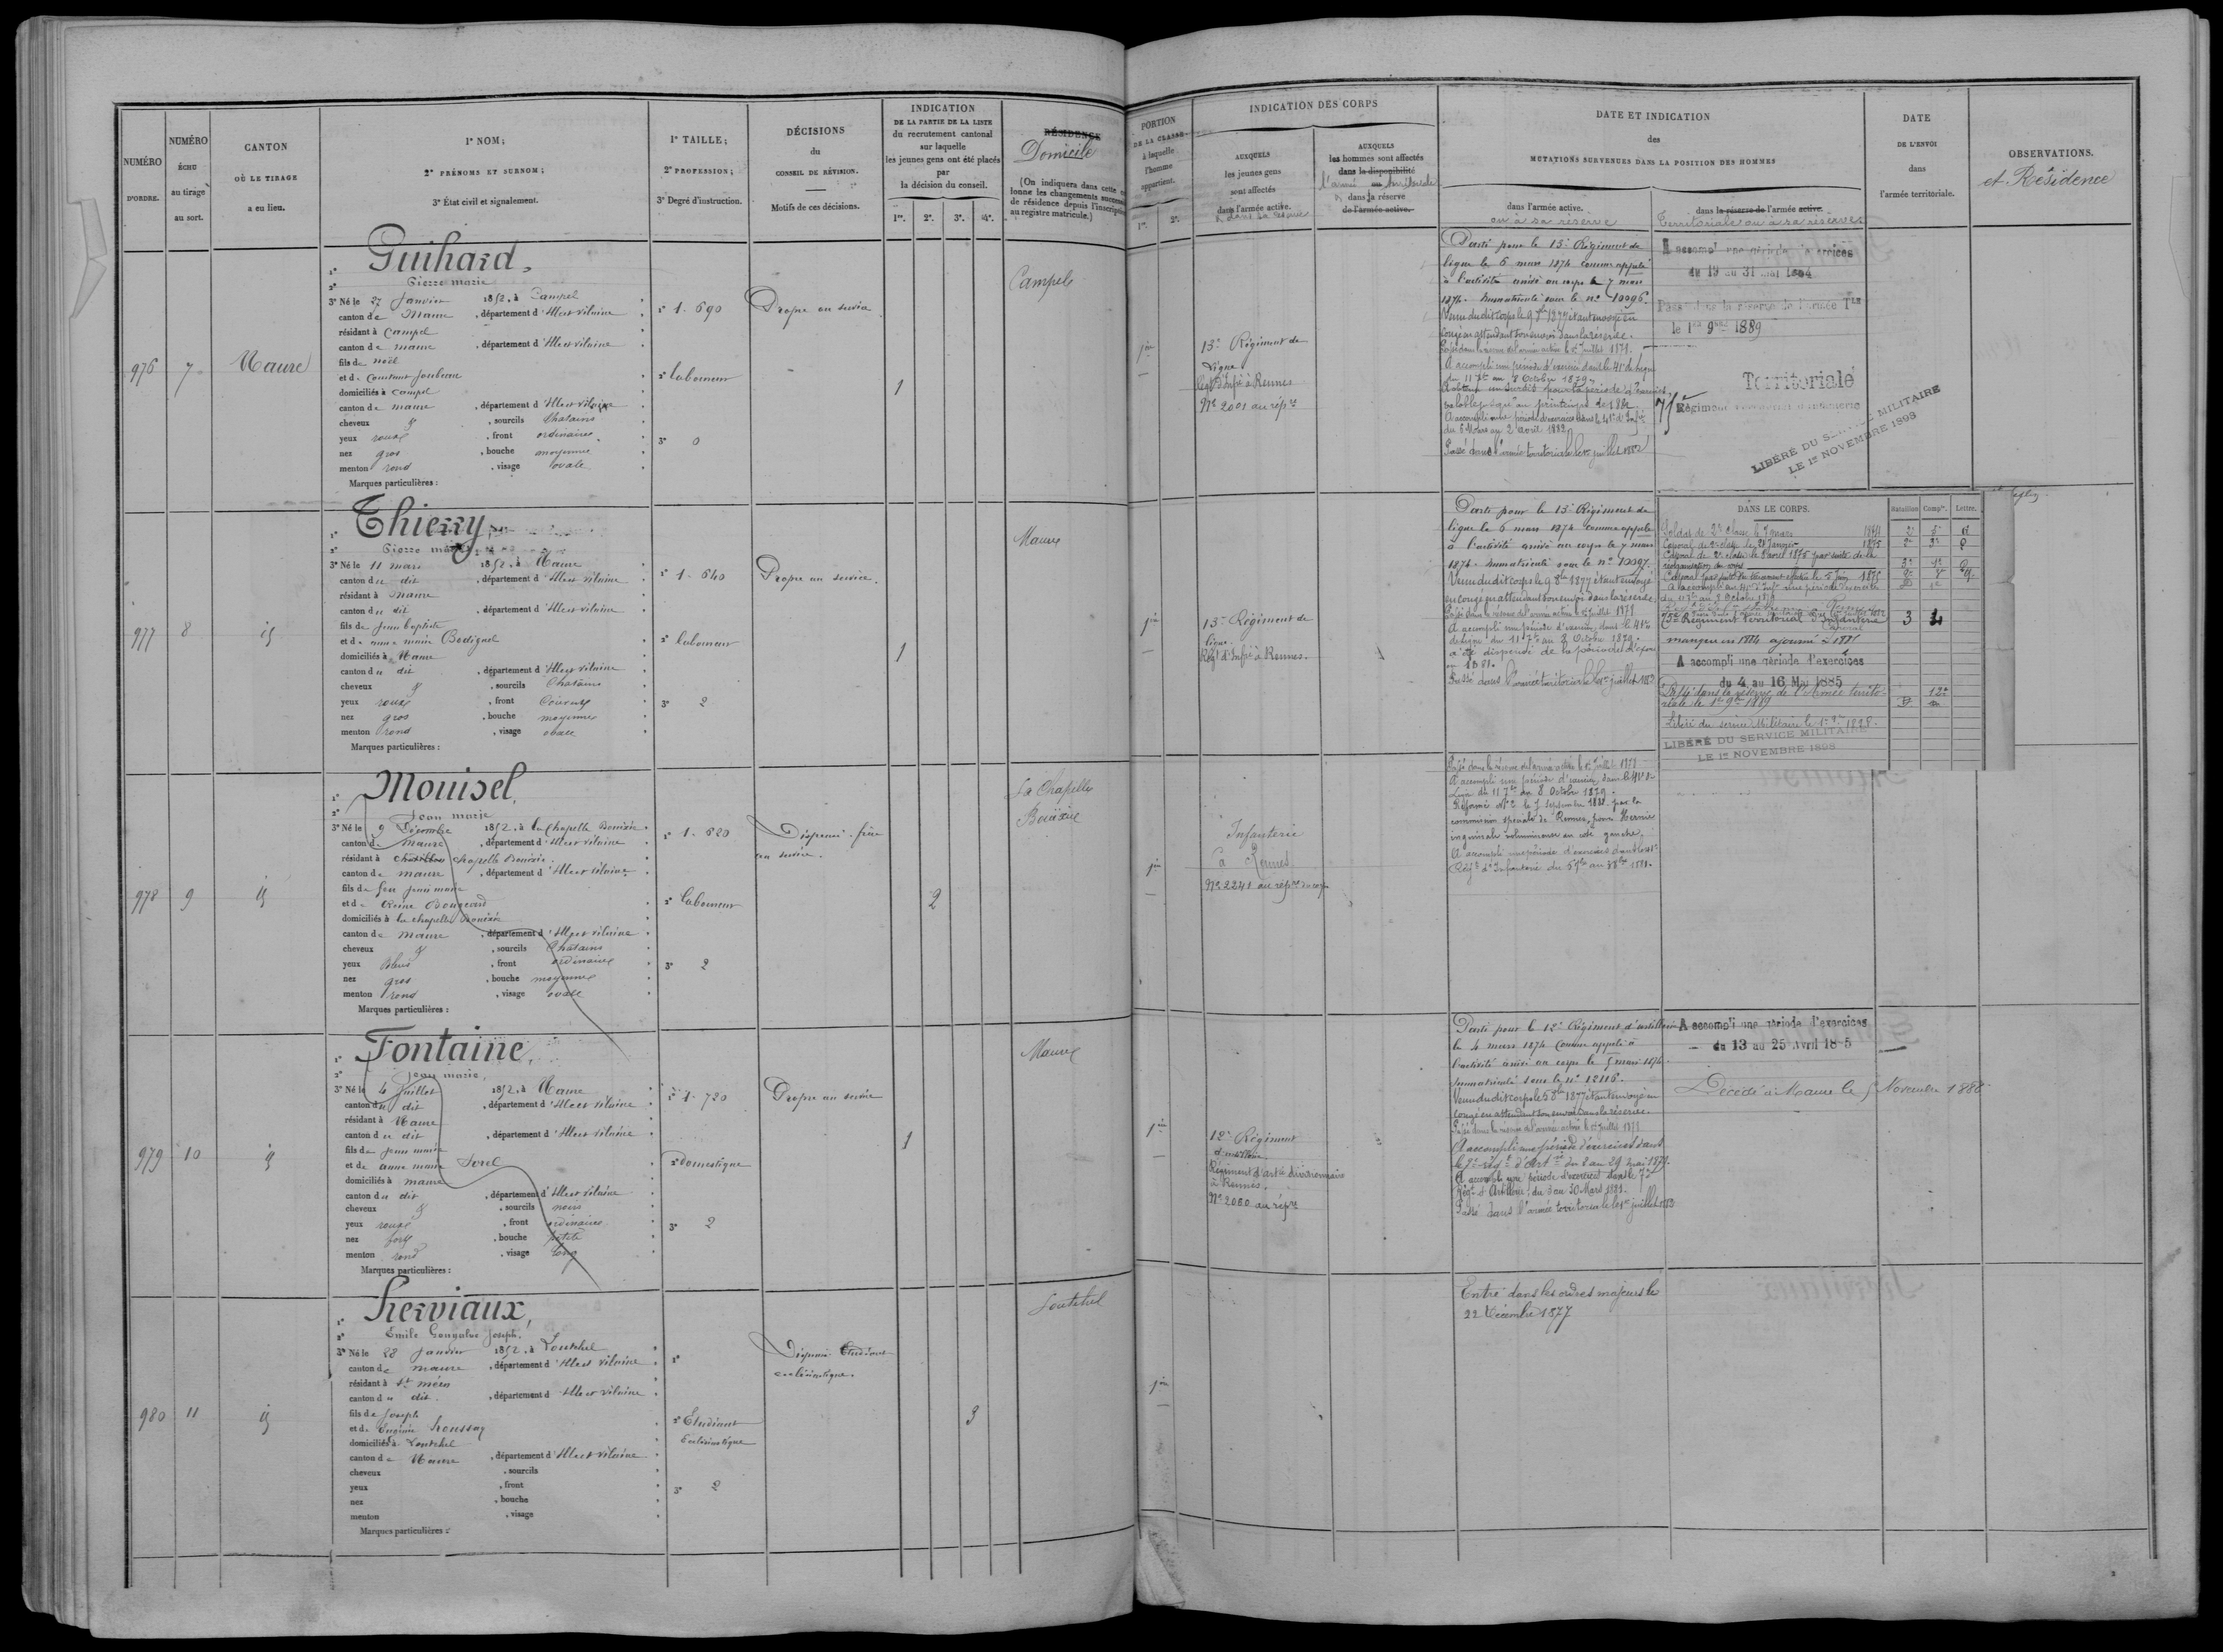 NUMÉRO
D'ORDRE.
NUMÉRO
ÉCHU
au tirage
au sort.
CANTON
OÙ LE TIRAGE
a eu lieu.
1° NOM;
2° PRÉNOMS ET SURNOM;
3° État civil et signalement.
1° TAILLE;
2° PROFESSION;
3° Degré d'instruction.
DÉCISIONS
du
CONSEIL DE RÉVISION.
Motifs de ces décisions.
INDICATION
DE LA PARTIE DE LA LISTE
du recrutement cantonal
sur laquelle
les jeunes gens ont été placés
par
la décision du conseil.
1re. 2e. 3e. 4e.
RÉSIDENCE
Domicile
(On indiquera dans cette
lonne les changements
de résidence depuis l'inscription
au registre matricule.)
PORTION
DE LA CLASSE
à laquelle
l'homme
appartient.
1re. 2e.
INDICATION DES CORPS
AUXQUELS
les jeunes gens
sont affectés
dans l'armée active.
AUXQUELS
les hommes sont affectés
dans la disponibilité
dans la réserve
de l'armée active.
DATE ET INDICATION
des
MUTATIONS SURVENUES DANS LA POSITION DES HOMMES
dans l'armée active.
ou à sa réserve
dans la réserve de l'armée active.
Territoriale ou à sa réserve
DATE
DE L'ENVOI
dans
l'armée territoriale.
OBSERVATIONS.
et Résidence
976 7 Maure
Guihard,
Pierre marie
3° Né le 27 Janvier 1852, à Campel
canton de Maure, département d'Ille et vilaine
résidant à Campel
canton de maure, département d'Ille et vilaine
fils de noël
domiciliés à Campel
canton de maure, département d'Ille et vilaine
cheveux, sourcils Chatains
yeux roux, front ordinaire
nez gros, bouche moyenne
menton rond, visage ovale
Marques particulières :
1° 1. 690
2° laboureur
3° 0
Propre au service
1
Campel
13e Régiment de
ligne
Régt d'Infie à Rennes
No 2001 au répre
Parti pour le 13e Régiment de
ligne le 6 mars 1874 comme appelé
à l'activité arrivé au corps le 7 mars
1874. Immatriculé sous le no 10096.
congé en attendant son envoi dans la réserve.
Passé dans la réserve de l'armée active le 1er Juillet 1879.
A accompli une période d'exercices dans le 41e de ligne
du 11 7bre au 8 Octobre 1879
du 6 Mars au 2 avril 1882
Passé dans l'armée territoriale le 1er juillet 1882
A accompli une période d'exercices
du 19 au 31 mai 1884
Passé dans la réserve de l'armée Tle
le 1er 9bre 1889
Territoriale
75e Régiment Territorial d'Infanterie
LIBÉRÉ DU SERVICE MILITAIRE
LE 1er NOVEMBRE 1898
977 8 id
Thierry,
Pierre marie
3° Né le 11 mars 1852, à Maure
canton du dit, département d'Ille et vilaine
résidant à Maure
canton du dit, département d'Ille et vilaine
fils de Jean baptiste
et de anne marie Bodiguel
domiciliés à Maure
canton du dit, département d'Ille et vilaine
cheveux, sourcils Chatains
yeux roux, front Couvert
nez gros, bouche moyenne
menton rond, visage ovale
Marques particulières :
1° 1. 640
2° laboureur
3° 2
Propre au service.
1
Maure
13e Régiment de
ligne.
Régt d'Infie à Rennes.
Parti pour le 13e Régiment de
ligne le 6 mars 1874 comme appelé
à l'activité arrivé au corps le 7 mars
1874. Immatriculé sous le no 10097.
Venu du dit corps le 9 8bre 1877 étant envoyé
en congé en attendant son envoi dans la réserve.
Passé dans la réserve de l'armée active le 1er Juillet 1879
A accompli une période d'exercices dans le 41e
de ligne du 11 7bre au 8 Octobre 1879.
a été dispensé de la période d'exercices
en 1881.
Passé dans l'armée territoriale le 1er juillet 1882
DANS LE CORPS.
Bataillon Compie. Lettre.
Soldat de 2e classe le 7 mars 1874
Caporal de 2e classe le 21 Janvier 1875
75e Régiment Territorial d'Infanterie
3 4
manquant en 1884 ajourné à 1885
A accompli une période d'exercices
du 4 au 16 Mai 1885
Passé dans la réserve de l'Armée territo-
riale le 1er 9bre 1889
LIBÉRÉ DU SERVICE MILITAIRE
LE 1er NOVEMBRE 1898
978 9 id
Mouisel,
Jean marie
3° Né le 9 Décembre 1852, à la Chapelle Bouëxic
canton de maure, département d'Ille et vilaine
résidant à Chapelle Bouëxic
canton de maure, département d'Ille et vilaine
fils de feu Jean marie
domiciliés à la chapelle Bouëxic
canton de maure, département d'Ille et vilaine
cheveux, sourcils Chatains
yeux bleus, front ordinaire
nez gros, bouche moyenne
menton rond, visage ovale
Marques particulières :
1° 1. 620
2° laboureur
3° 2
Dispensé. frère
au service.
2
La Chapelle
Bouëxic
Infanterie
à Rennes
No 2241 au répre du corps
Passé dans la réserve de l'armée active le 1er Juillet 1879
A accompli une période d'exercices dans le 41e de
Ligne du 11 7bre au 8 Octobre 1879.
commission spéciale de Rennes, pour Hernie
inguinale volumineuse au côté gauche.
A accompli une période d'exercices dans le 41e
Régt d'Infanterie
979 10 id
Fontaine
Jean marie,
3° Né le 4 Juillet 1852, à Maure
canton du dit, département d'Ille et vilaine
résidant à Maure
canton du dit, département d'Ille et vilaine
fils de Jean marie
et de anne marie Sorel
domiciliés à maure
canton du dit, département d'Ille et vilaine
cheveux, sourcils noirs
yeux roux, front ordinaire
nez fort, bouche petite
menton rond, visage long
Marques particulières :
1° 1. 720
2° domestique
3° 2
Propre au service
1
Maure
12e Régiment
d'artillerie.
Régiment d'artie divisionnaire
à Rennes.
No 2060 au répre
Parti pour le 12e Régiment d'artillerie
le 4 mars 1874 comme appelé à
l'activité arrivé au corps le 5 mars 1874.
Immatriculé sous le no 12116.
Venu du dit corps le 5 8bre 1877 étant envoyé en
congé en attendant son envoi dans la réserve.
Passé dans la réserve de l'armée active le 1er Juillet 1879
A accompli une période d'exercices dans
le 7e régt d'Artie du 2 au 29 mai 1879.
A accompli une période d'exercices dans le 7e
Régt d'Artillerie, du 3 au 30 Mars 1881.
Passé dans l'armée territoriale le 1er juillet 1882
A accompli une période d'exercices
du 13 au 25 Avril 1885
Décédé à Maure le 5 Novembre 1888
980 11 id
Herviaux,
Emile Gonzalve Joseph.
3° Né le 28 Janvier 1852, à Loutehel
canton de maure, département d'Ille et vilaine
résidant à St méen
canton du dit, département d'Ille et vilaine
fils de Joseph
et de Eugénie houssay
domiciliés à Loutehel
canton de Maure, département d'Ille et vilaine
cheveux, sourcils
yeux, front
nez, bouche
menton, visage
Marques particulières :
1°
2° Etudiant
Ecclésiastique
3° 2
Dispensé Etudiant
ecclésiastique.
3
Loutehel
Entré dans les ordres majeurs le
22 Décembre 1877